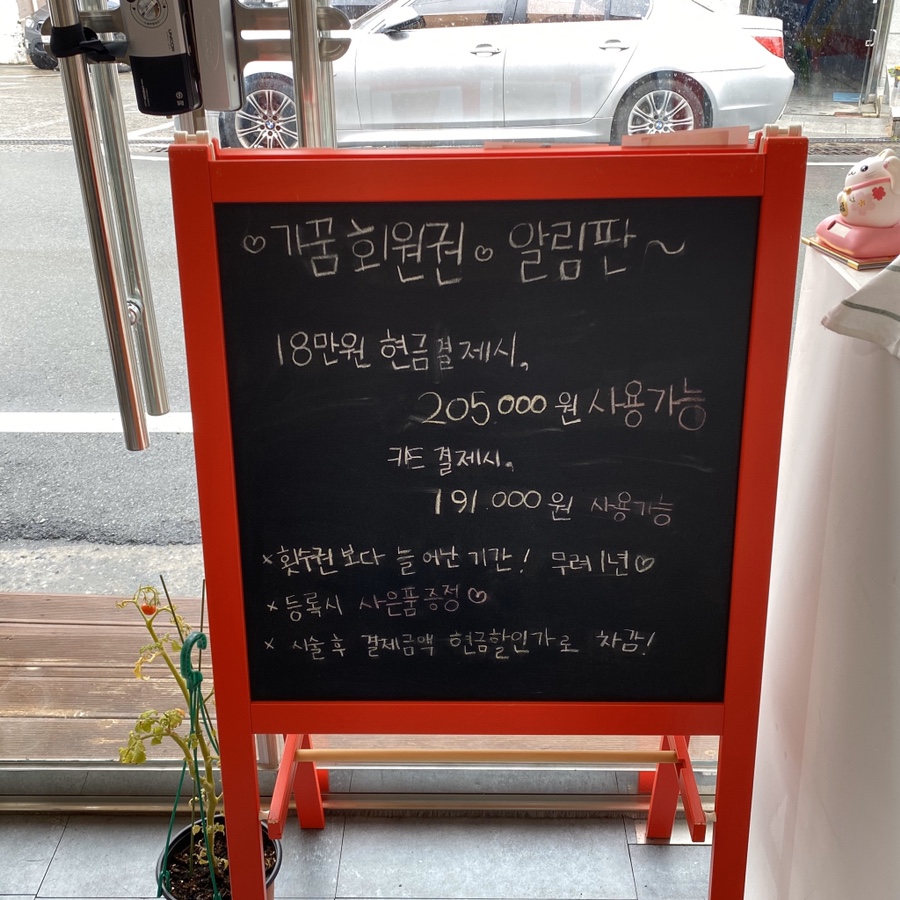 ♡가꿈회원권♡ 알림판~
18만원 현금결제시,
205.000원 사용가능
카드 결제시,
191.000원 사용가능
* 횟수권보다 늘어난 기간! 무려 1년♡
* 등록시 사은품증정♡
* 시술 후 결제금액 현금할인가로 차감!